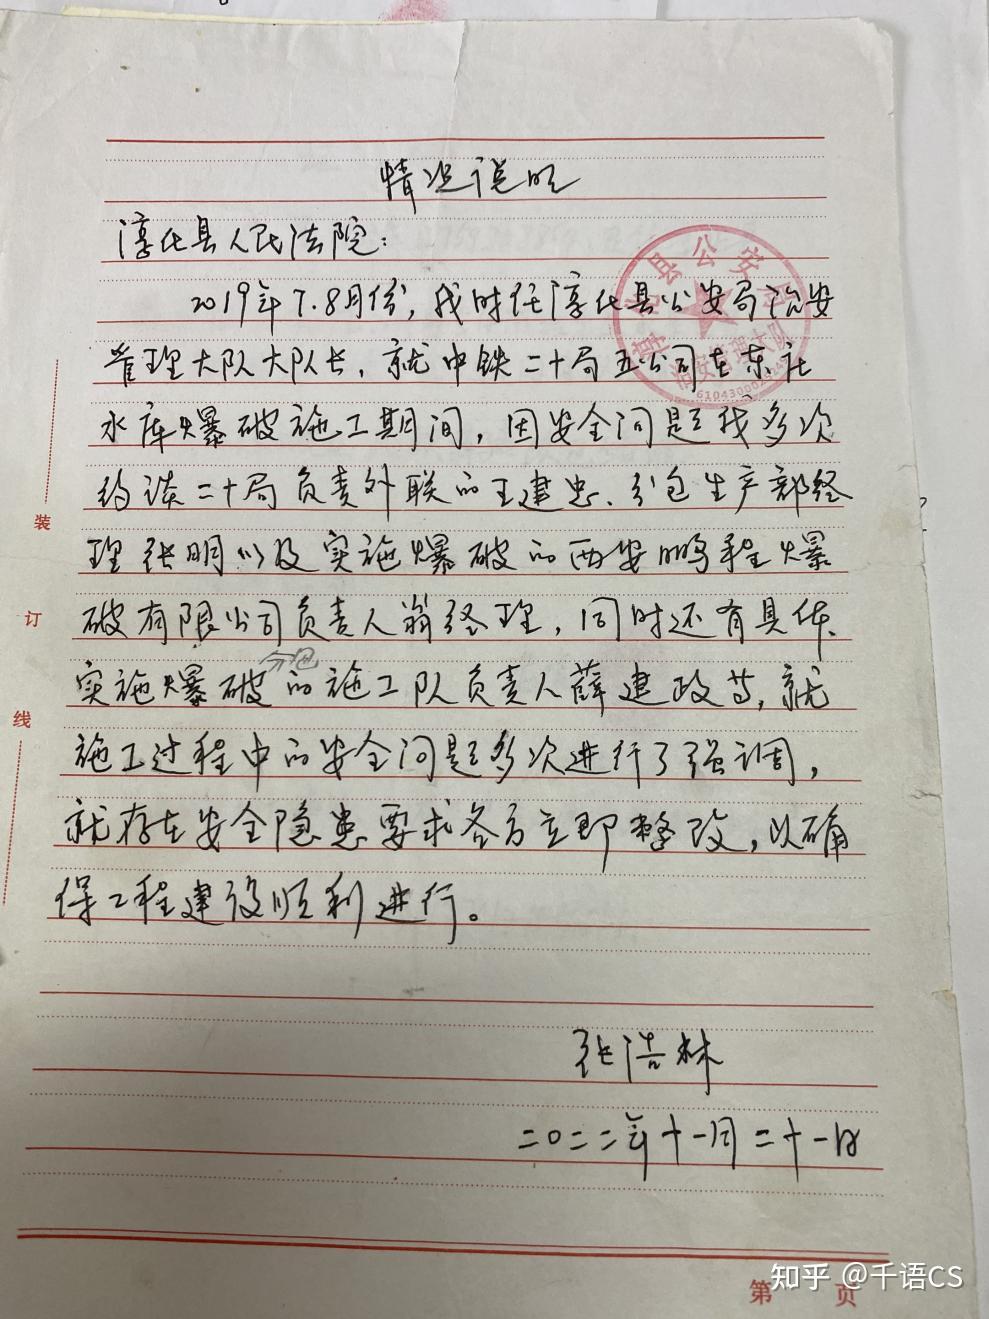 情况说明
淳化县人民法院:
2019年7.8月份,我时任淳化县公安局治安
管理大队大队长,就中铁二十局五公司在东庄
水库爆破施工期间,因安全问题我多次
约谈二十局负责外联的王建忠、分包生产部经
理张明以及实施爆破的西安鹏程爆
破有限公司负责人翁经理,同时还有具体
分包
实施爆破的施工队负责人薛建政等,就
施工过程中的安全问题多次进行了强调,
就存在安全隐患要求各方立即整改,以确
保工程建设顺利进行。
张浩林
二〇二二年十一月二十一日
淳化县公安局
治安管理大队
装
订
线
第 页
知乎 @千语CS